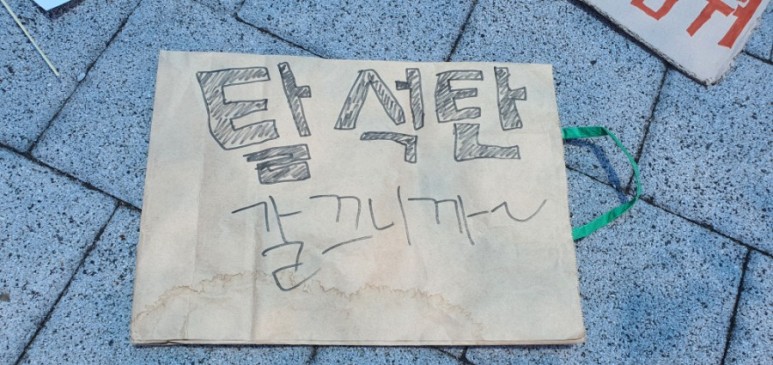 탈석탄
갈끄니까~